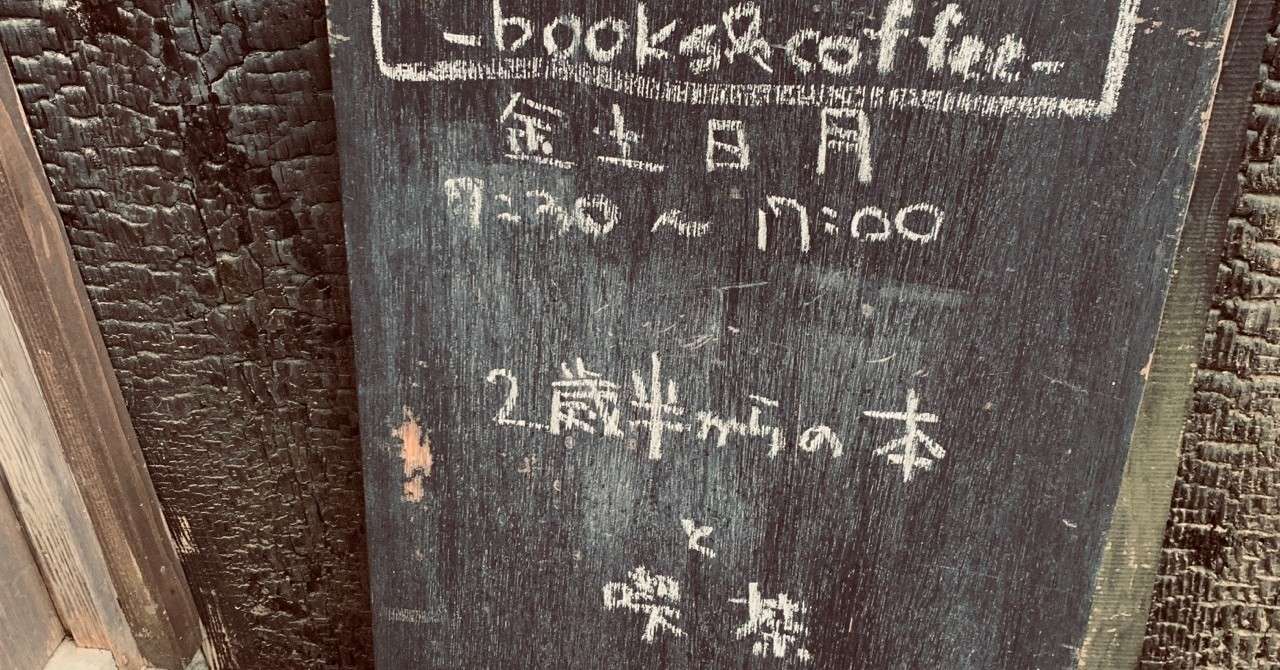 -books&coffee-
金土日月
7:30~17:00
2歳半からの本
と
喫茶